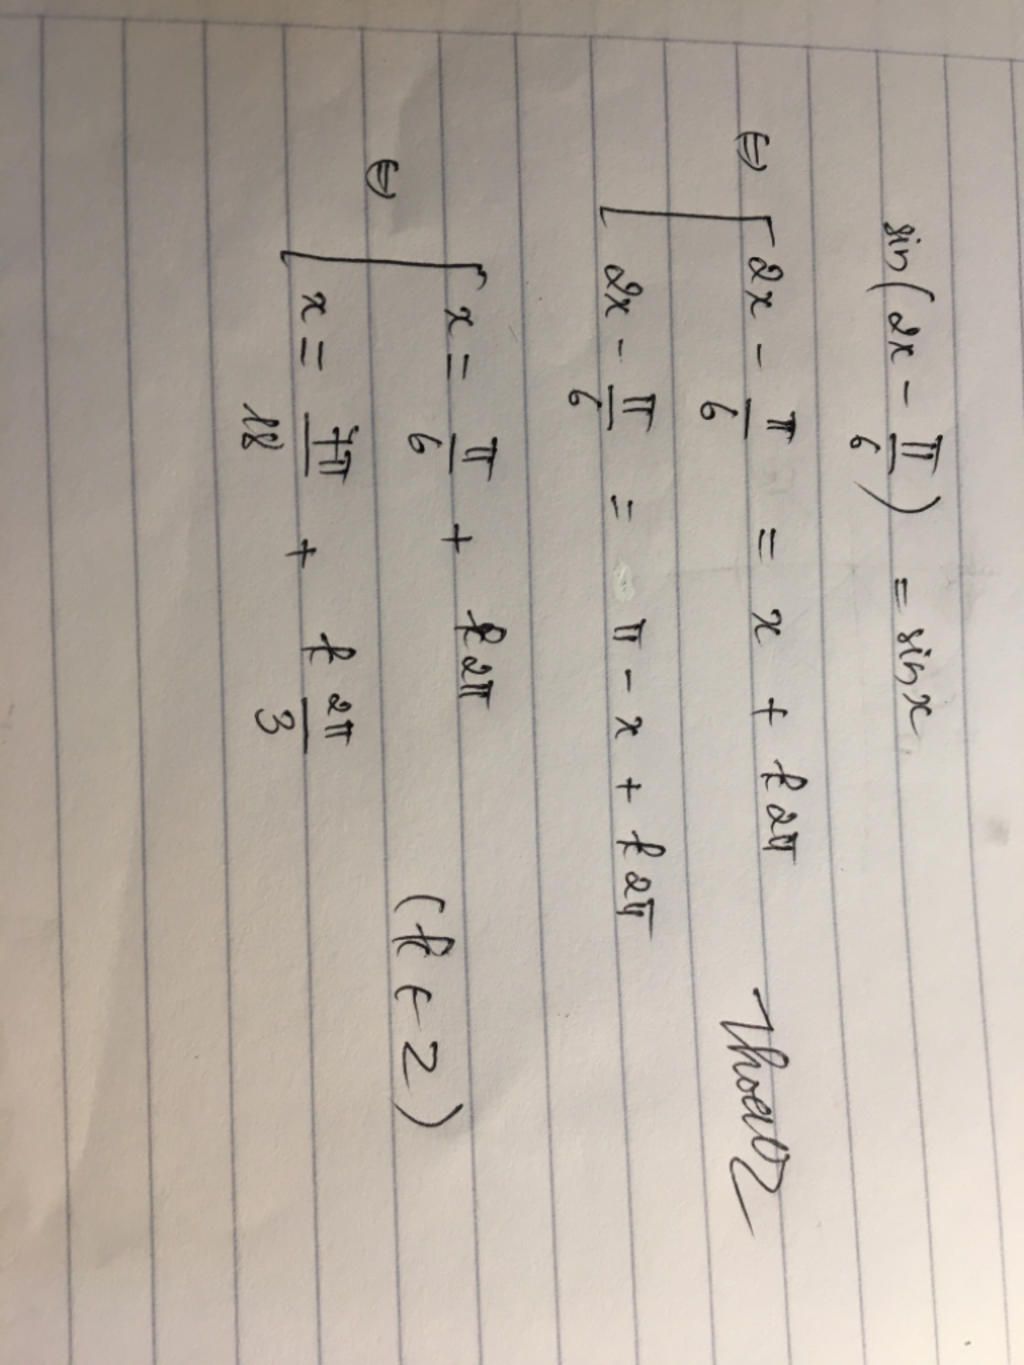 sin(2x - π/6) = sin x
⇔ [ 2x - π/6 = x + k2π
2x - π/6 = π - x + k2π
⇔ [ x = π/6 + k2π
x = 7π/18 + k2π/3
(k ∈ Z)